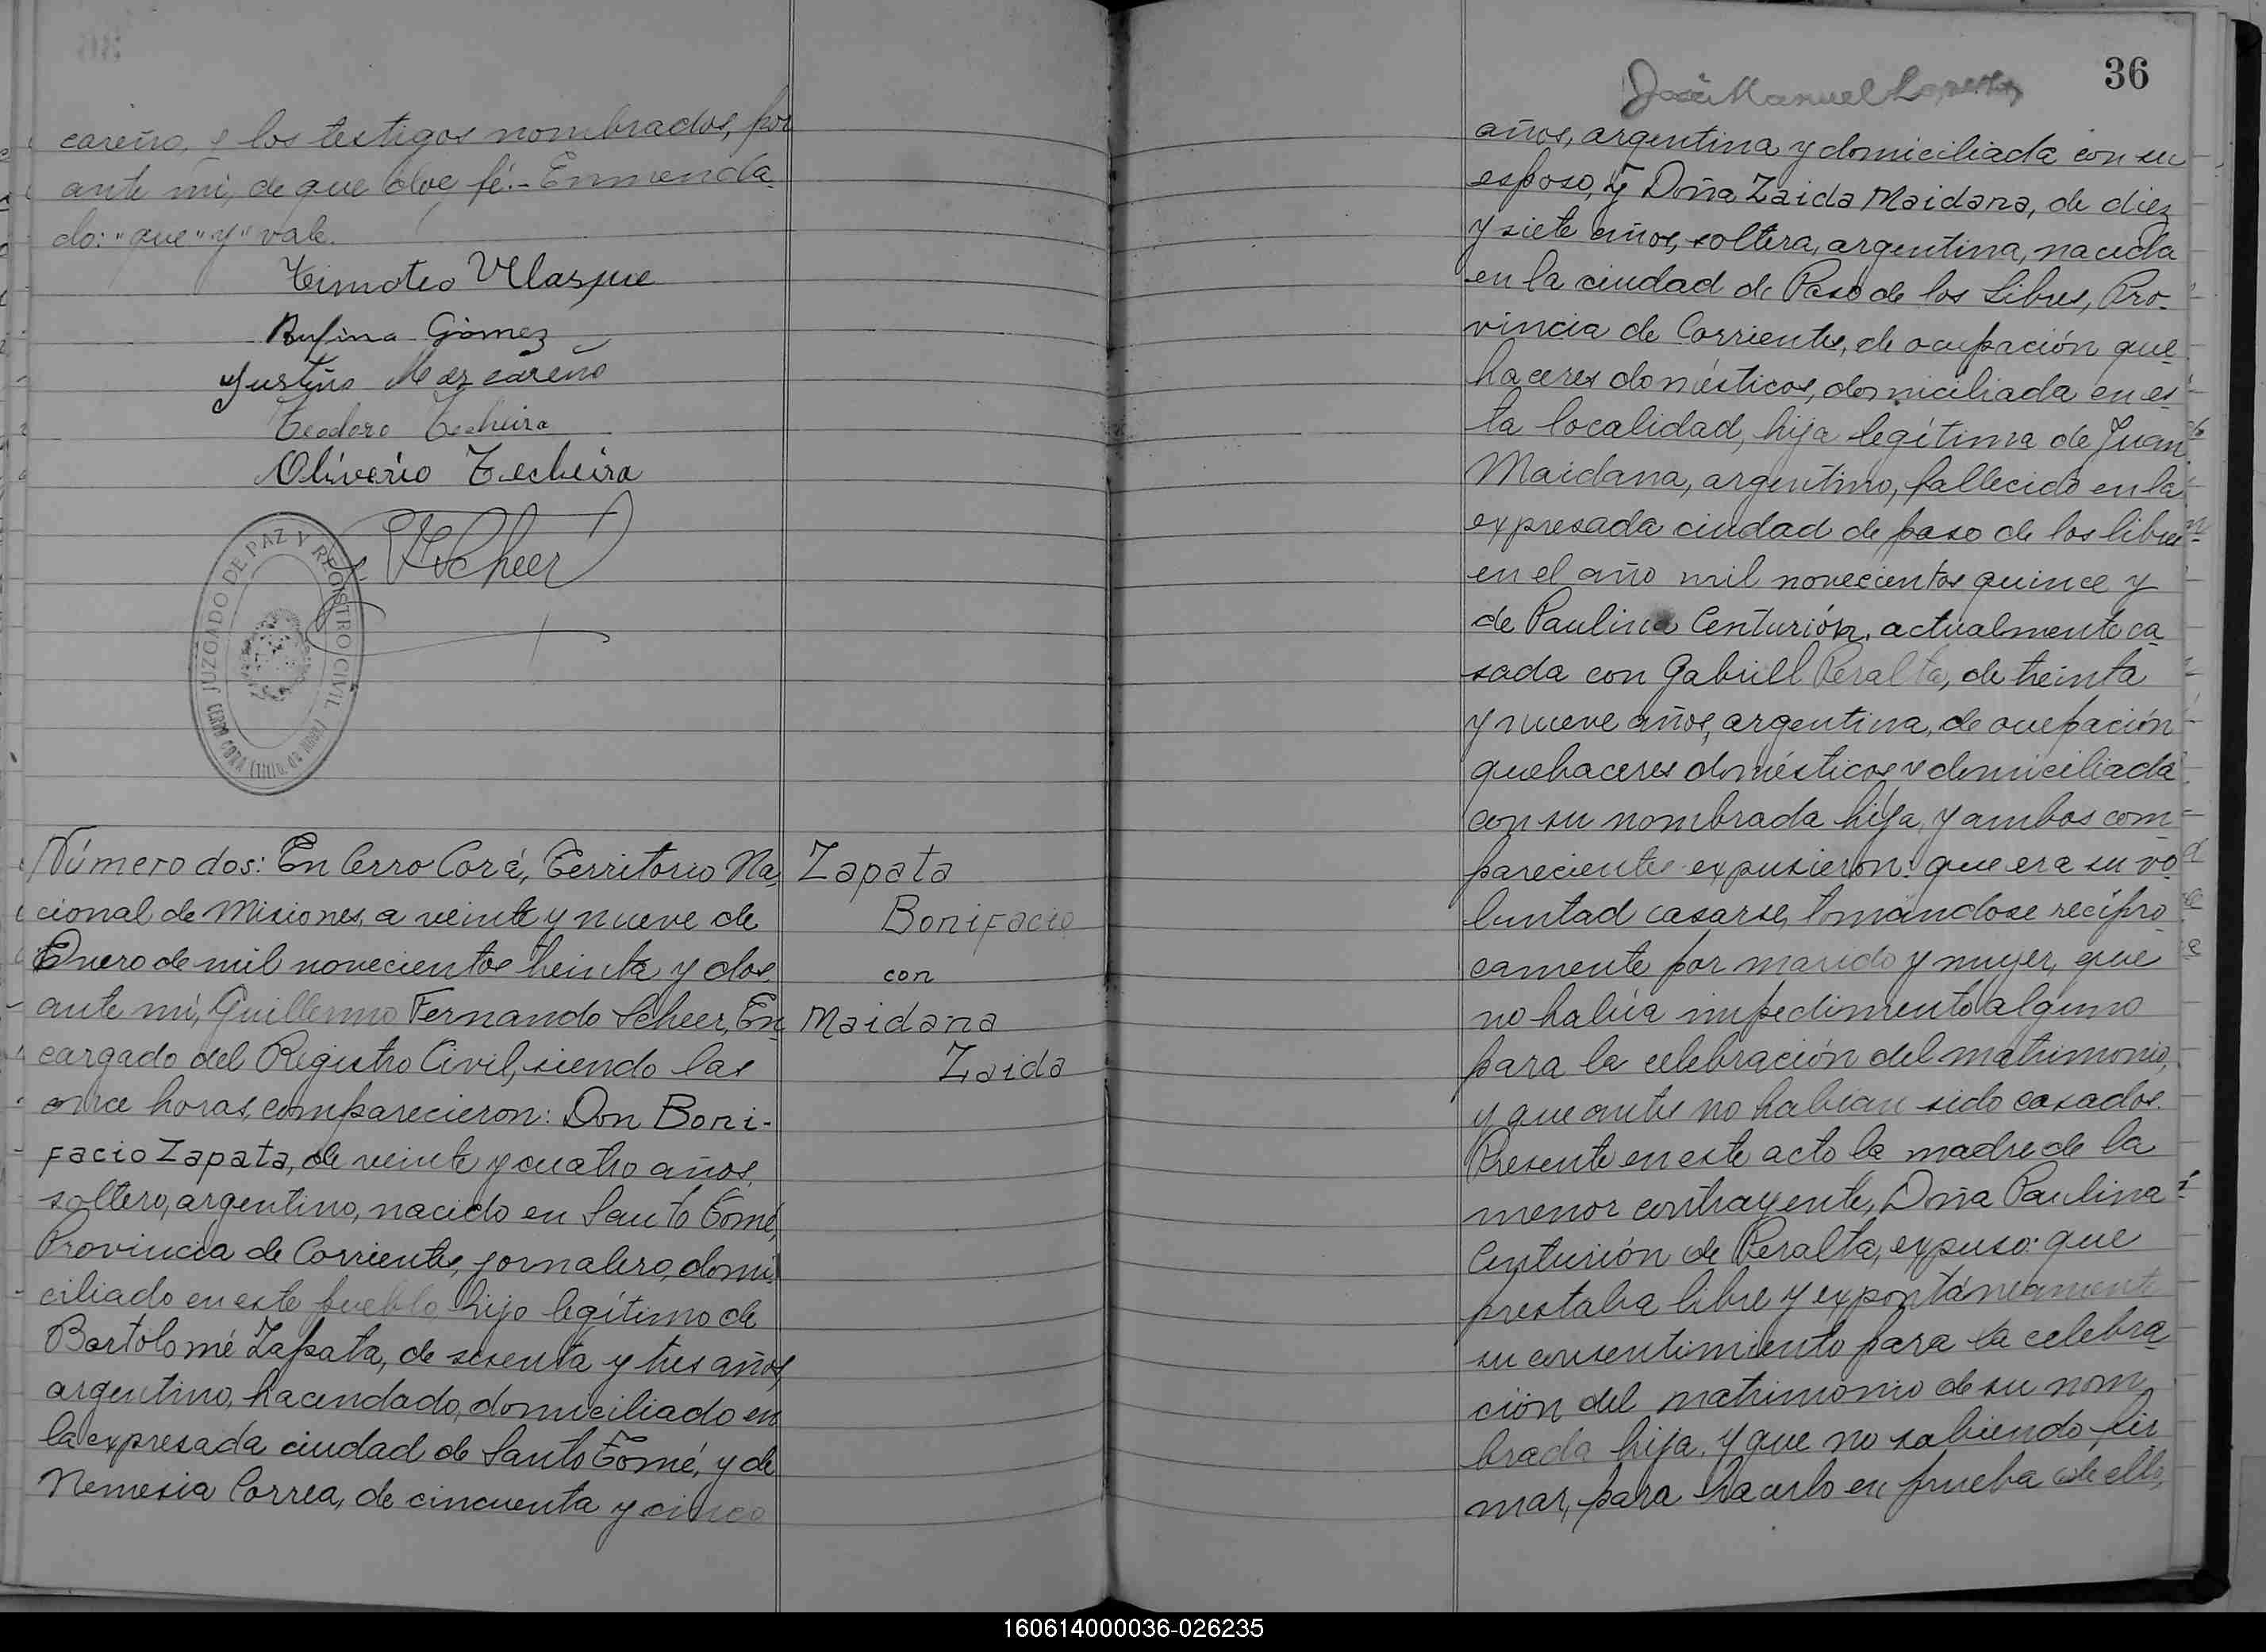 careño, y los testigos nombrados, por
ante mí, de que doy fé.- Enmenda-
do: "que" "y" vale.
Timoteo Velasque
Rufina Gómez
Justino Mazcareño
Teodoro Techeira
Oliverio Techeira
Scheer
JUZGADO DE PAZ Y REGISTRO CIVIL
CERRO CORA
Número dos: En Cerro Corá, Territorio Na-
cional de Misiones, a veinte y nueve de
Enero de mil novecientos treinta y dos,
ante mí, Guillermo Fernando Scheer, En-
cargado del Registro Civil, siendo las
once horas, comparecieron: Don Boni-
facio Zapata, de veinte y cuatro años,
soltero, argentino, nacido en Santo Tomé,
Provincia de Corrientes, jornalero, domi-
ciliado en este pueblo, hijo legítimo de
Bartolomé Zapata, de sesenta y tres años,
argentino, hacendado, domiciliado en
la expresada ciudad de Santo Tomé, y de
Nemesia Correa, de cincuenta y cinco
Zapata
Bonifacio
con
Maidana
Zaida
36
José Manuel
años, argentina y domiciliada con su
esposo, y Doña Zaida Maidana, de diez
y siete años, soltera, argentina, nacida
en la ciudad de Paso de los Libres, Pro-
vincia de Corrientes, de ocupación que-
haceres domésticos, domiciliada en es-
ta localidad, hija legítima de Juan
Maidana, argentino, fallecido en la
expresada ciudad de paso de los libres
en el año mil novecientos quince y
de Paulina Centurión, actualmente ca-
sada con Gabriel Peralta, de treinta
y nueve años, argentina, de ocupación
quehaceres domésticos y domiciliada
con su nombrada hija, y ambos com-
parecientes expusieron: que era su vo-
luntad casarse, tomándose recípro-
camente por marido y mujer, que
no había impedimento alguno
para la celebración del matrimonio,
y que antes no habían sido casados.
Presente en este acto la madre de la
menor contrayente, Doña Paulina
Centurión de Peralta, expuso: que
prestaba libre y expontáneamente
su consentimiento para la celebra-
ción del matrimonio de su nom-
brada hija, y que no sabiendo fir-
mar, para hacerlo en prueba de ello,
160614000036-026235